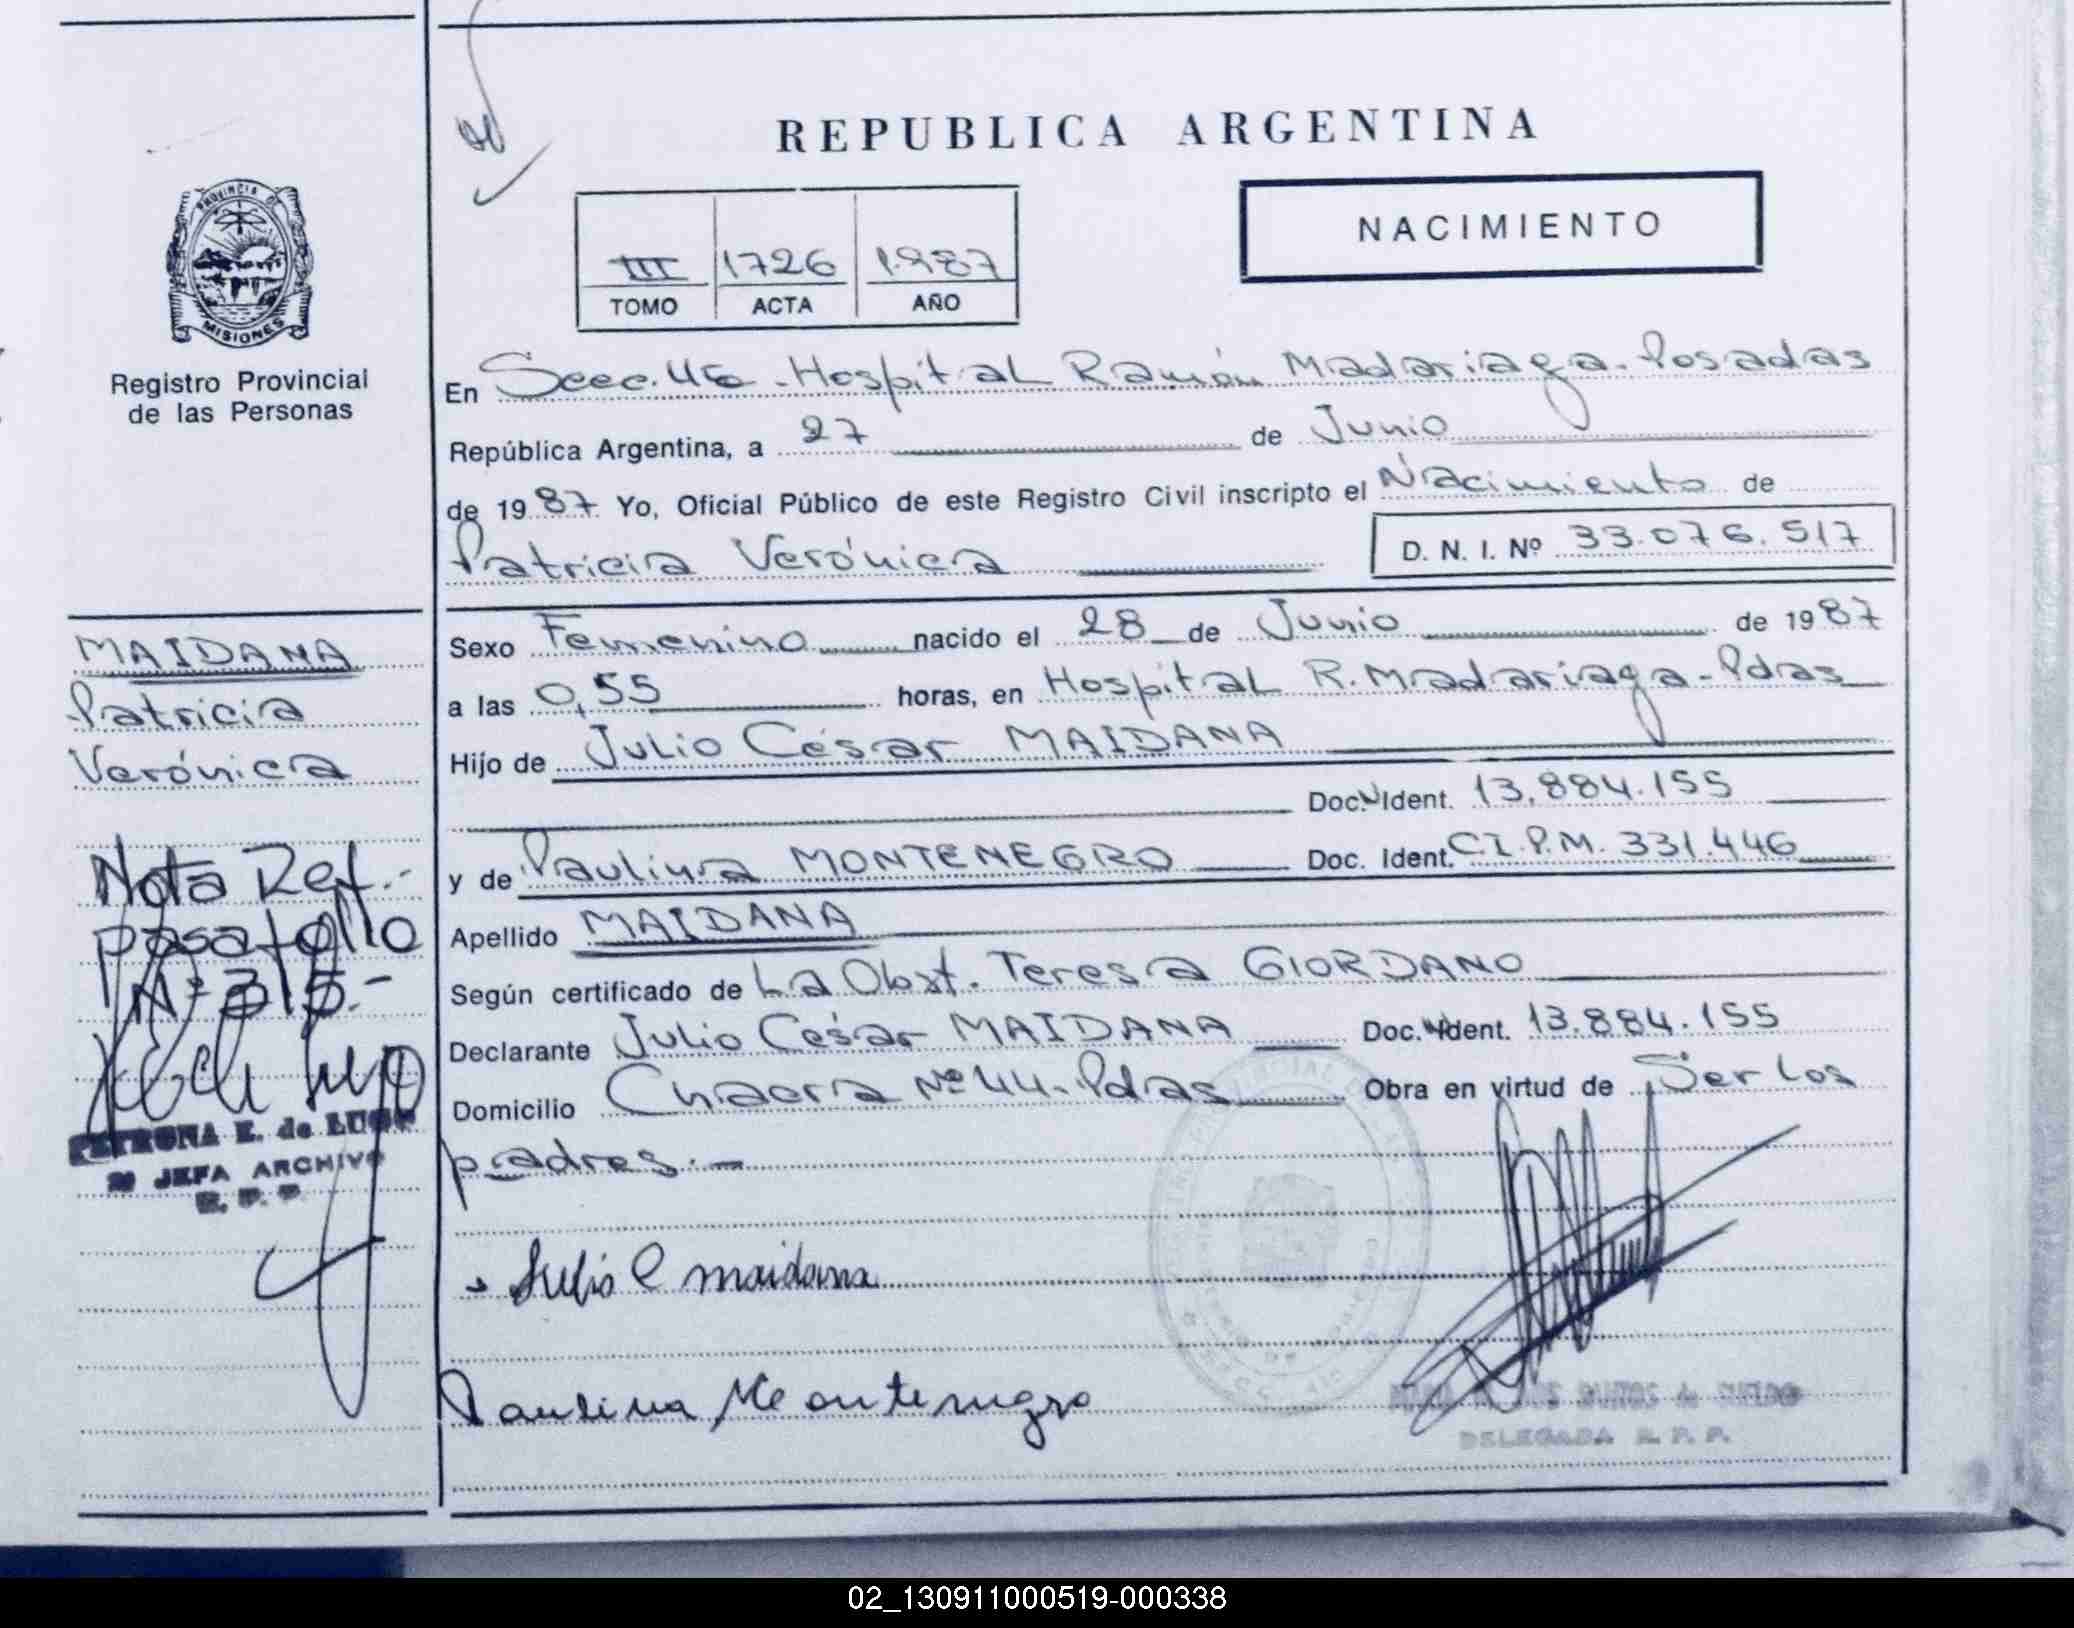 REPUBLICA ARGENTINA
NACIMIENTO
III 1726 1.987
TOMO ACTA AÑO
PROVINCIA DE
MISIONES
Registro Provincial
de las Personas
En Secc. 4ta - Hospital Ramón Madariaga - Posadas
República Argentina, a 27 de Junio
de 1987 Yo, Oficial Público de este Registro Civil inscripto el Nacimiento de
Patricia Verónica
D. N. I. Nº 33.076.517
Sexo Femenino nacido el 28 de Junio de 1987
a las 0,55 horas, en Hospital R. Madariaga - Pdas
Hijo de Julio César MAIDANA
Doc. Ident. 13.884.155
y de Paulina MONTENEGRO Doc. Ident. C.I.P.M. 331.446
Apellido MAIDANA
Según certificado de La Obst. Teresa GIORDANO
Declarante Julio César MAIDANA Doc. Ident. 13.884.155
Domicilio Chacra Nº 44 - Pdas Obra en virtud de Ser los
padres.-
Julio C maidana
Paulina Montenegro
DELEGADA R. P. P.
MAIDANA
Patricia
Verónica
Nota Ref.-
pasa folio
Nº 315.-
PETRONA E. de LUGO
JEFA ARCHIVO
R. P. P.
02_130911000519-000338